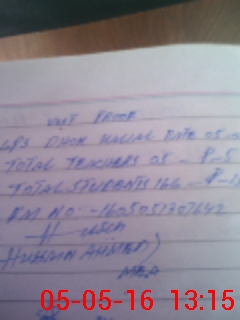 VISIT PROOF
GPS DHOK HALAL DATE 05-0
TOTAL TEACHERS 05 - P-5
TOTAL STUDENTS 166 - P-1
EMI NO: -1605051307642
HUSSAIN AHMED)
MEA
05-05-16 13:15